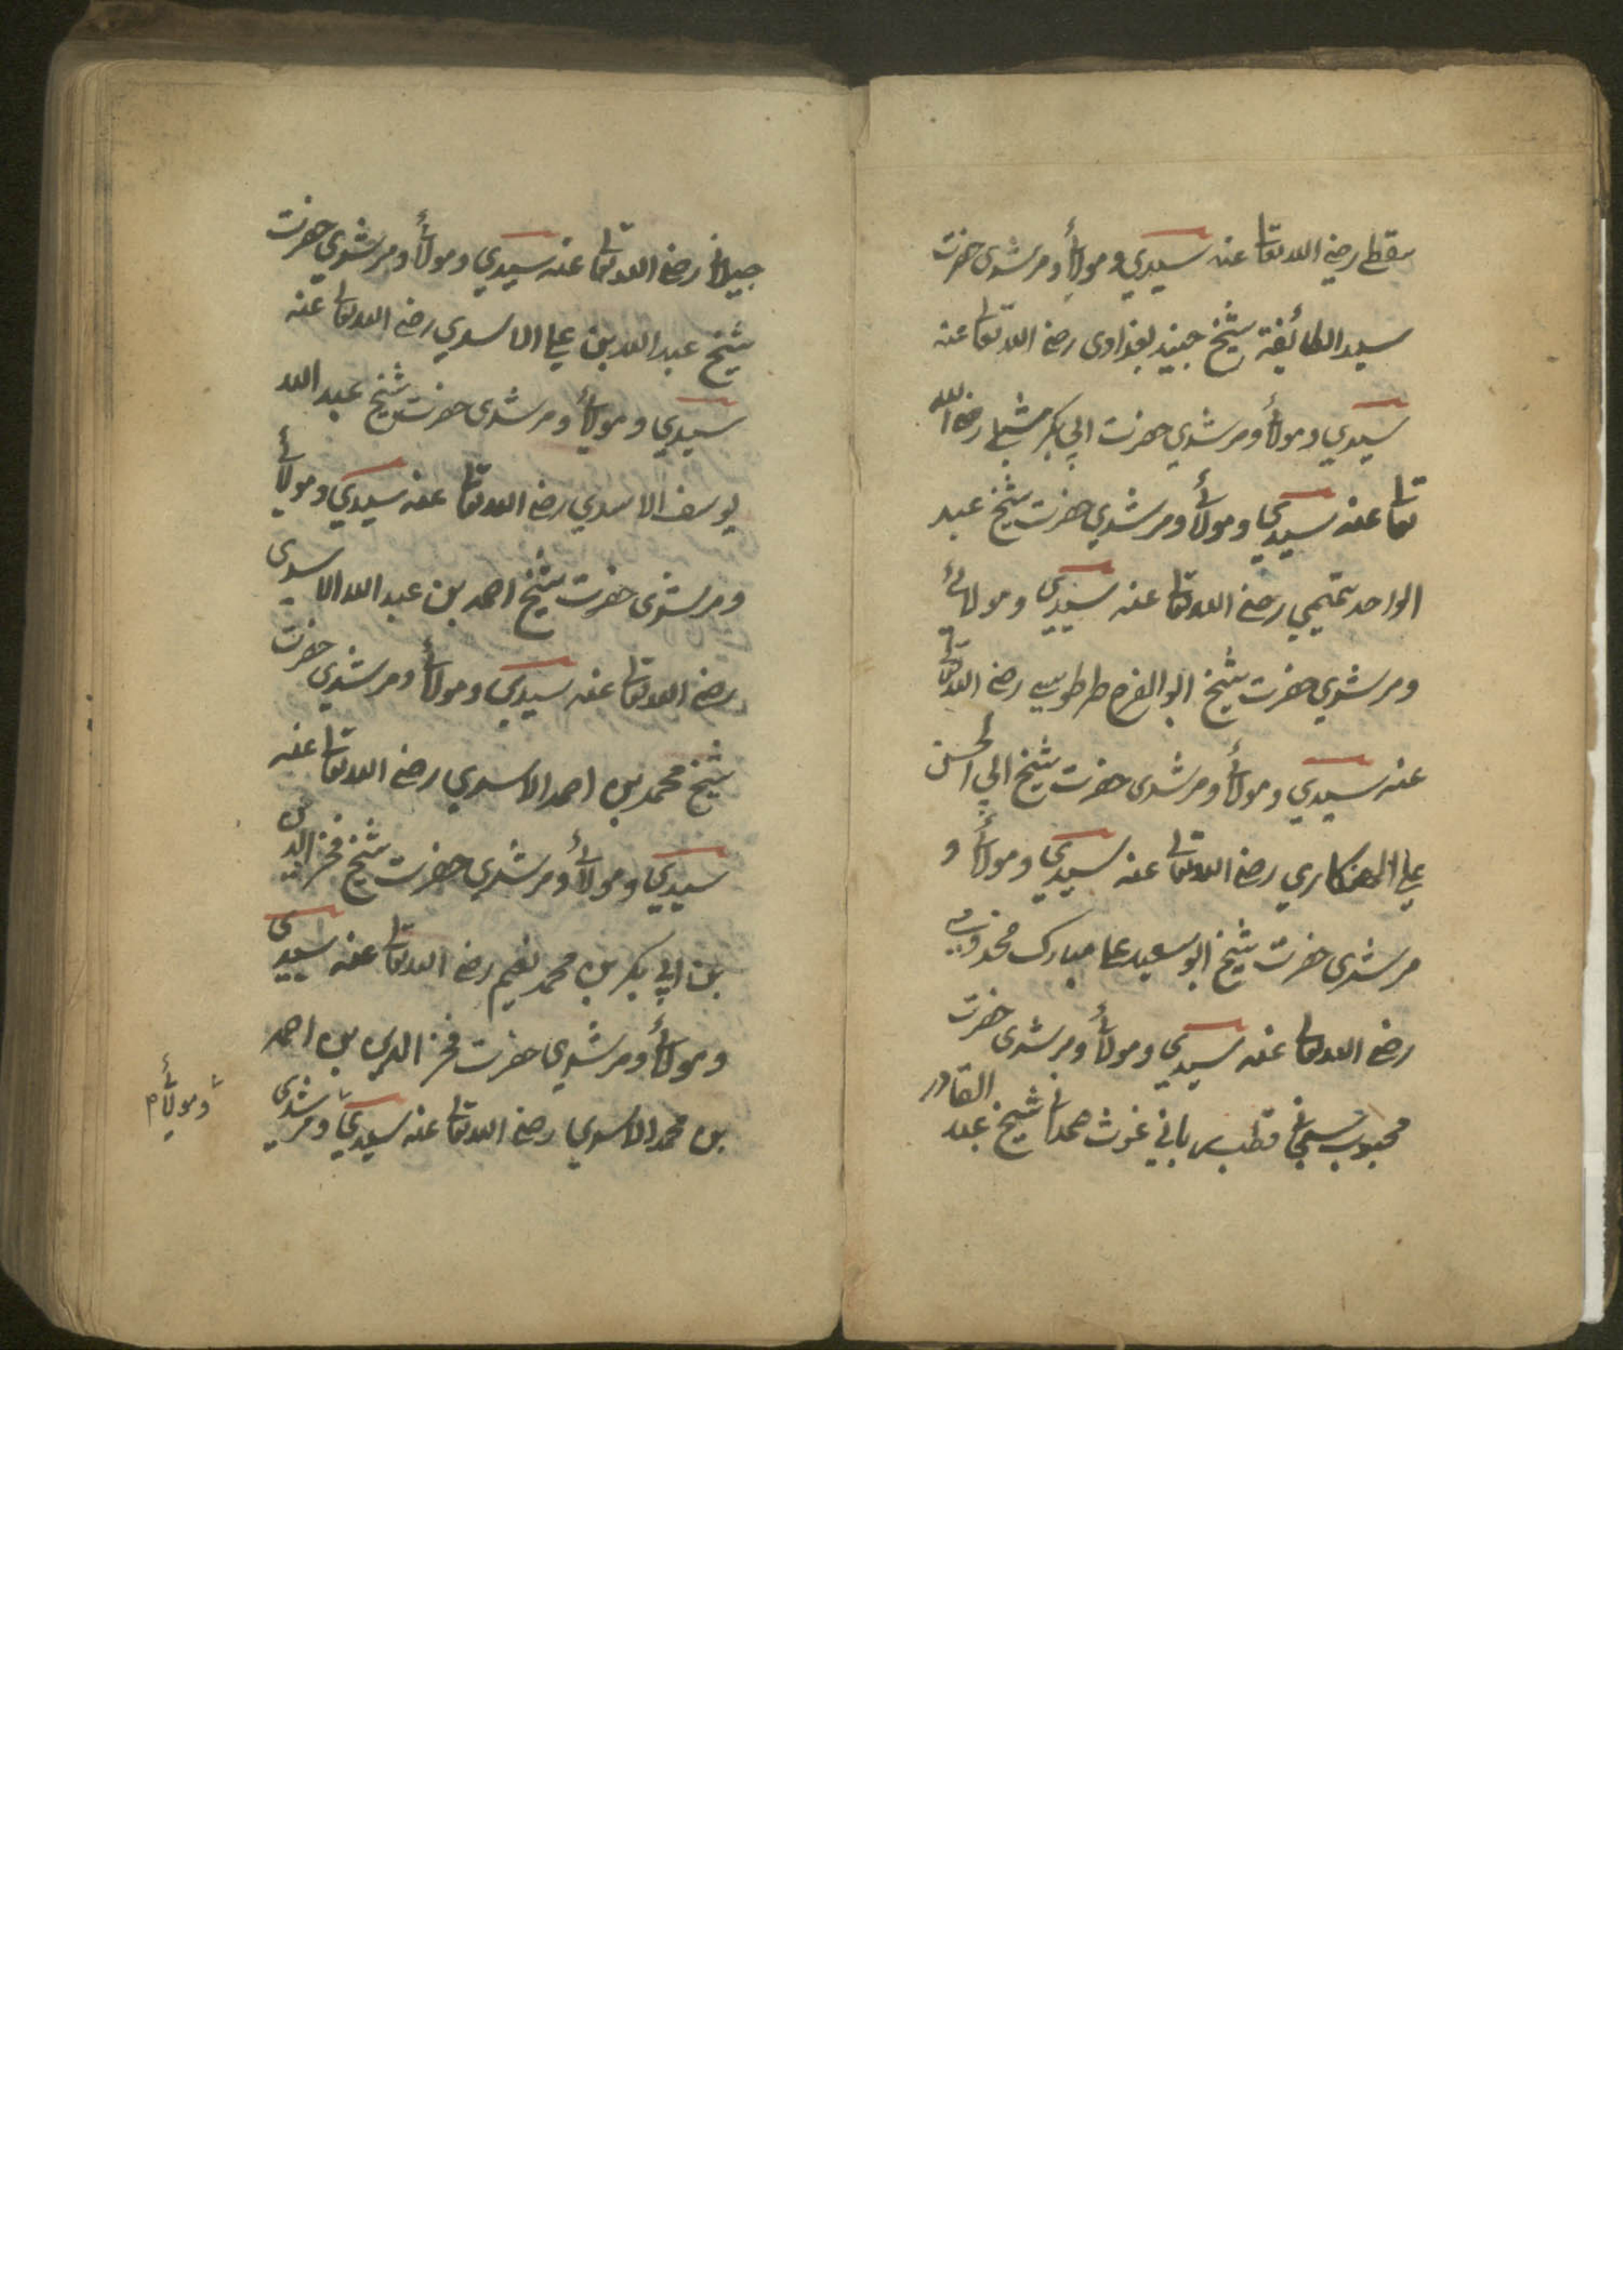 سقطي رضي الله تعالى عنه سيدي ومولائي ومرشدي حضرت
سيد الطائفة شيخ جنيد بغدادي رضي الله تعالى عنه
سيدي ومولائي ومرشدي حضرت ابي بكر شبلي رضي الله
تعالى عنه سيدي ومولائي ومرشدي حضرت شيخ عبد
الواحد تميمي رضي الله تعالى عنه سيدي ومولائي
ومرشدي حضرت شيخ ابو الفرح طرطوسي رضي الله تعالى
عنه سيدي ومولائي ومرشدي حضرت شيخ ابي الحسن
علي الهنكاري رضي الله تعالى عنه سيدي ومولائي و
مرشدي حضرت شيخ ابو سعيد علي مبارك مخدومي
رضي الله تعالى عنه سيدي ومولائي ومرشدي حضرت
محبوب سبحاني قطب رباني غوث صمداني شيخ عبد القادر
جيلاني رضي الله تعالى عنه سيدي ومولائي ومرشدي حضرت
شيخ عبد الله بن علي الاسدي رضي الله تعالى عنه
سيدي ومولائي ومرشدي حضرت شيخ عبد الله
يوسف الاسدي رضي الله تعالى عنه سيدي ومولائي
ومرشدي حضرت شيخ احمد بن عبد الله الاسدي
رضي الله تعالى عنه سيدي ومولائي ومرشدي حضرت
شيخ محمد بن احمد الاسدي رضي الله تعالى عنه
سيدي ومولائي ومرشدي حضرت شيخ فخر الدين
بن ابي بكر بن محمد نعيم رضي الله تعالى عنه سيدي
ومولائي ومرشدي حضرت فخر الدين بن احمد
بن محمد الاسدي رضي الله تعالى عنه سيدي ومرشدي
ومولائي